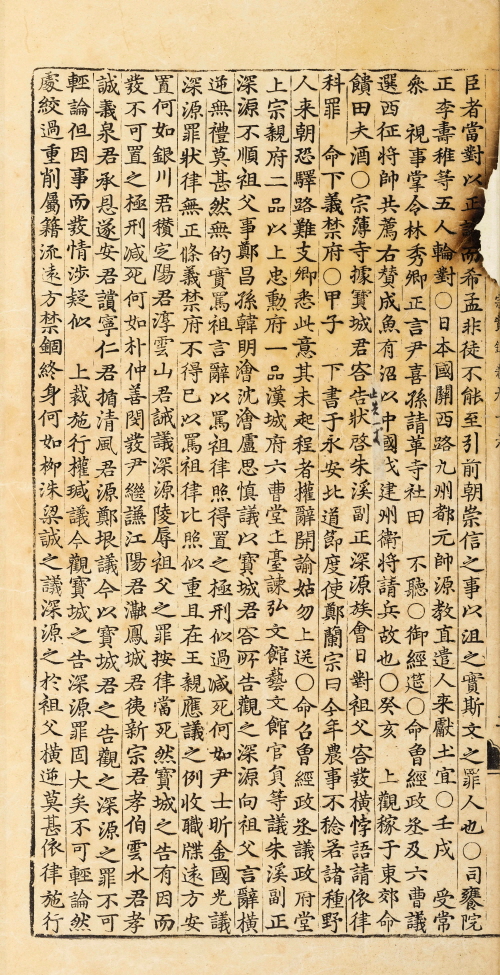 臣者當對以正而希孟非徒不能至引前朝崇信之事以沮之實斯文之罪人也○司饔院
正李壽稚等五人輪對○日本國關西路九州都元帥源教直遣人來獻土宜○壬戌 受常
叅 視事掌令林秀卿正言尹喜孫請革寺社田 不聽○御經筵○命曾經政丞及六曹議
選西征將帥共薦右贊成魚有沼以中國伐建州衛將請兵故也○癸亥 上觀稼于東郊命
饋田夫酒○宗薄寺據寶城君容告狀啓朱溪副正深源族會日對祖父容發橫悖語請依律
科罪 命下義禁府○甲子 下書于永安北道節度使鄭蘭宗曰今年農事不稔若諸種野
人來朝恐驛路難支卿悉此意其未起程者權辭開諭姑勿上送○命召曾經政丞議政府堂
上宗親府二品以上忠勳府一品漢城府六曹堂上臺諫弘文館藝文館官員等議朱溪副正
深源不順祖父事鄭昌孫韓明澮沈澮盧思愼議以寶城君容所告觀之深源向祖父言辭橫
逆無禮莫甚然無的實罵祖言辭以罵祖律照得置之極刑似過减死何如尹士昕金國光議
深源罪狀律無正條義禁府不得已以罵祖律比照似重且在王親應議之例收職牒遠方安
置何如銀川君穳定陽君淳雲山君誡議深源陵辱祖父之罪按律當死然寶城之告有因而
發不可置之極刑减死何如朴仲善閔發尹繼謙江陽君瀜鳳城君㣩新宗君孝伯雲水君孝
誠義泉君承恩遂安君讀寧仁君楯清風君源鄭垠議今以寶城君之告觀之深源之罪不可
輕論但因事而發情涉疑似 上裁施行權瑊議今觀寶城之告深源罪固大矣不可輕論然
處絞過重削屬籍流遠方禁錮終身何如柳洙梁誠之議深源之於祖父橫逆莫甚依律施行